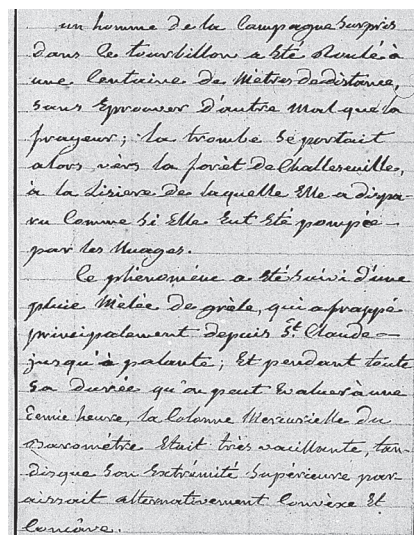 un homme de la Campagne surpris
dans le tourbillon a été Roulé à
une Centaine de Mètres de distance,
sans Eprouver d'autre Mal que la
frayeur ; la trombe se portait
alors vèrs la forèt de Challeseuille,
à la Lisiere de laquelle Elle a dispa-
ru Comme si Elle Eut Eté pompée
par les Nuages.
Ce phénomène a été suivi d'une
pluie Mèlée de grèle, qui a frappé
principalement depuis St. Claude
jusqu'à palante ; Et pendant toute
sa durée qu'on peut Evaluer à une
demie heure, la Colonne Mercurielle du
Baromètre Etait très vacillante, tan-
disque son Extrémité supérieure par-
aissait alternativement Convèxe Et
Concave.